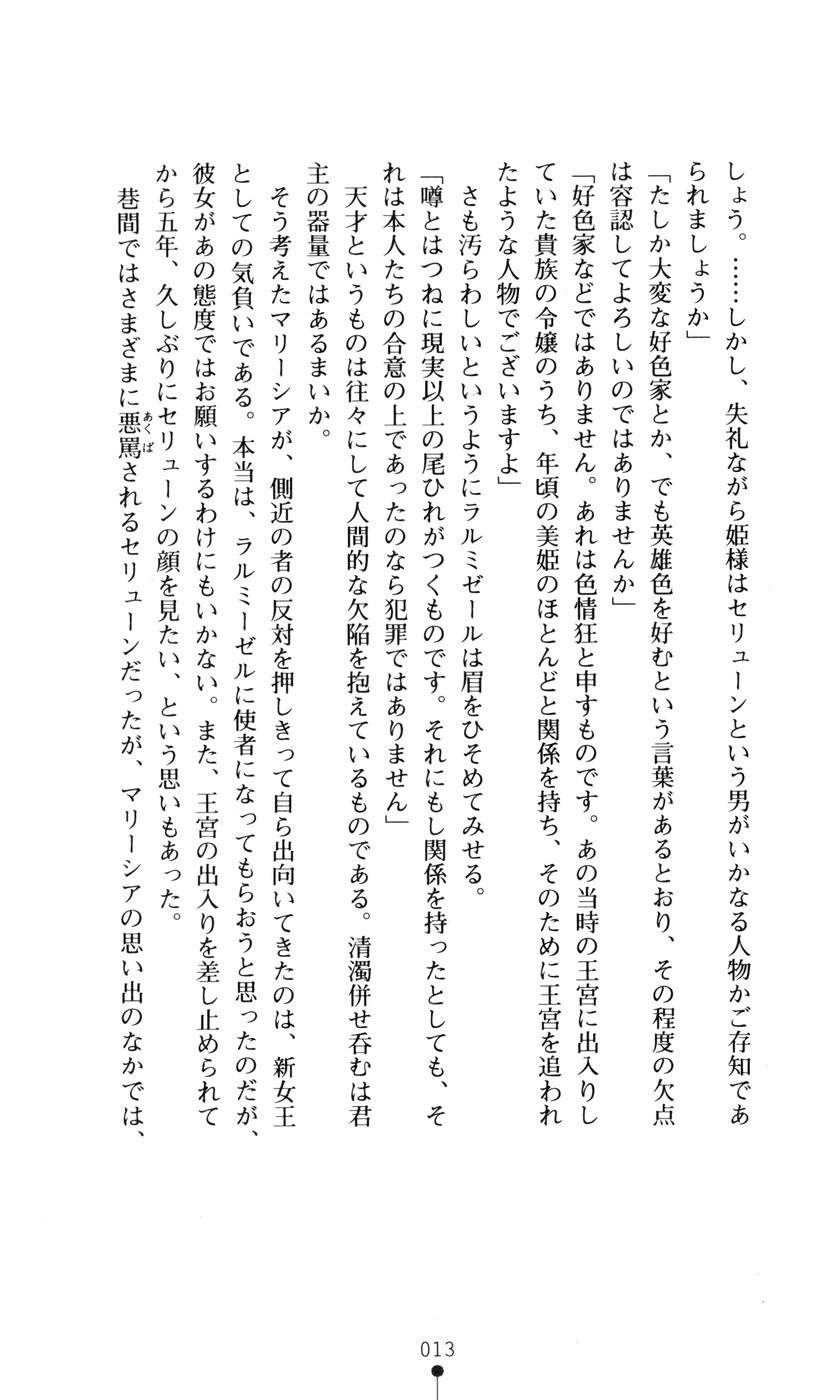 しょう。……しかし、失礼ながら姫様はセリューンという男がいかなる人物かご存知であ
られましょうか」
「たしか大変な好色家とか、でも英雄色を好むという言葉があるとおり、その程度の欠点
は容認してよろしいのではありませんか」
「好色家などではありません。あれは色情狂と申すものです。あの当時の王宮に出入りし
ていた貴族の令嬢のうち、年頃の美姫のほとんどと関係を持ち、そのために王宮を追われ
たような人物でございますよ」
　さも汚らわしいというようにラルミゼールは眉をひそめてみせる。
「噂とはつねに現実以上の尾ひれがつくものです。それにもし関係を持ったとしても、そ
れは本人たちの合意の上であったのなら犯罪ではありません」
　天才というものは往々にして人間的な欠陥を抱えているものである。清濁併せ呑むは君
主の器量ではあるまいか。
　そう考えたマリーシアが、側近の者の反対を押しきって自ら出向いてきたのは、新女王
としての気負いである。本当は、ラルミーゼルに使者になってもらおうと思ったのだが、
彼女があの態度ではお願いするわけにもいかない。また、王宮の出入りを差し止められて
から五年、久しぶりにセリューンの顔を見たい、という思いもあった。
　巷間ではさまざまに悪罵されるセリューンだったが、マリーシアの思い出のなかでは、
あくば
013